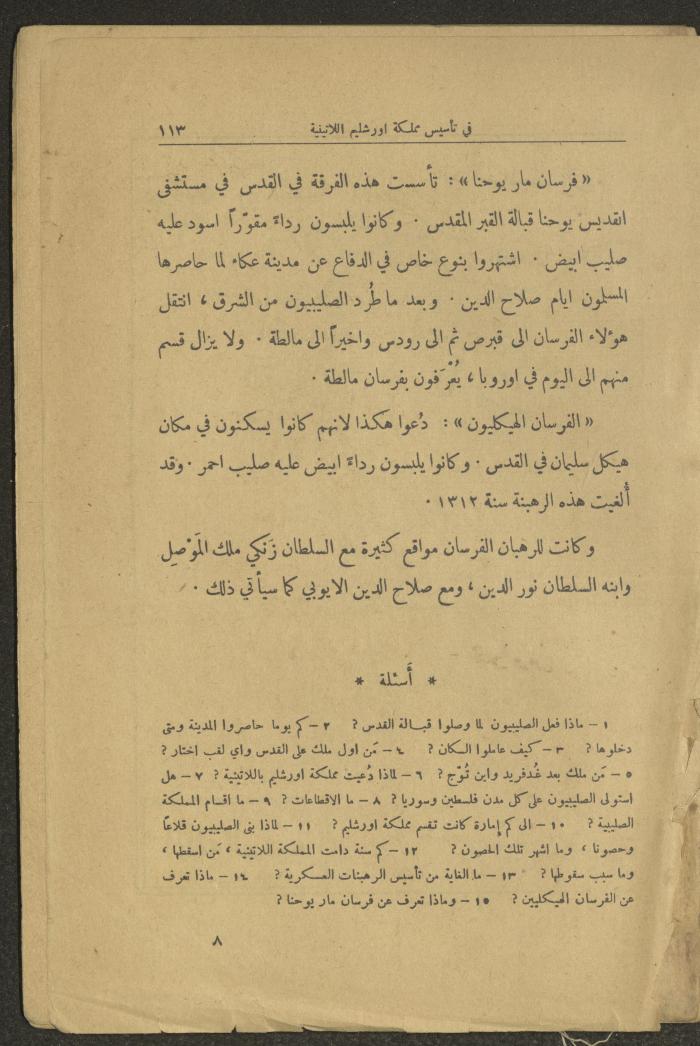 في تأسيس مملكة اورشليم اللاتينية ١١٣
« فرسان مار يوحنا » : تأسست هذه الفرقة في القدس في مستشفى
القديس يوحنا قبالة القبر المقدس . وكانوا يلبسون رداءً مقوّراً اسود عليه
صليب ابيض . اشتهروا بنوع خاص في الدفاع عن مدينة عكاء لما حاصرها
المسلمون ايام صلاح الدين . وبعد ما طُرد الصليبيون من الشرق ، انتقل
هوٴلاء الفرسان الى قبرص ثم الى رودس واخيراً الى مالطة . ولا يزال قسم
منهم الى اليوم في اوروبا ، يُعْرَفون بفرسان مالطة .
« الفرسان الهيكليون » : دُعوا هكذا لانهم كانوا يسكنون في مكان
هيكل سليمان في القدس . وكانوا يلبسون رداءً ابيض عليه صليب احمر . وقد
أُلغيت هذه الرهبنة سنة ١٣١٢ .
وكانت للرهبان الفرسان مواقع كثيرة مع السلطان زَنكي ملك المَوْصِل
وابنه السلطان نور الدين ، ومع صلاح الدين الايوبي كما سيأتي ذلك .
* أَسئلة *
١ – ماذا فعل الصليبيون لما وصلوا قبالة القدس ? ٢ – كم يوما حاصروا المدينة ومتى
دخلوها ? ٣ – كيف عاملوا السكان ? ٤ – مَن اول ملك على القدس واي لقب اختار ?
٥ – مَن ملك بعد غُدفريد واين تُوّج ? ٦ – لماذا دُعيت مملكة اورشليم باللاتينية ? ٧ – هل
استولى الصليبيون على كل مدن فلسطين وسوريا ? ٨ – ما الاقطاعات ? ٩ – ما اقسام المملكة
الصليبية ? ١٠ – الى كم إمارة كانت تنقسم مملكة اورشليم ? ١١ – لماذا بنى الصليبيون قلاعاً
وحصونا ، وما اشهر تلك الحصون ? ١٢ – كم سنة دامت المملكة اللاتينية ، مَن اسقطها ،
وما سبب سقوطها ? ١٣ – ما الغاية من تأسيس الرهبنات العسكرية ? ١٤ – ماذا تعرف
عن الفرسان الهيكليين ? ١٥ – وماذا تعرف عن فرسان مار يوحنا ?
٨